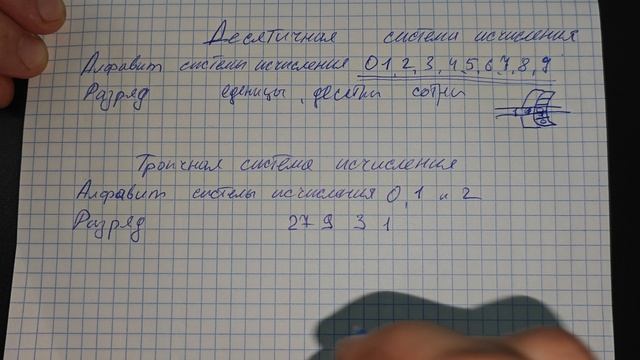 Десятичная система исчисления
Алфавит системы исчисления 0 1, 2, 3, 4, 5, 6, 7, 8, 9
Разряд еденицы, десятки сотни
Троичная система исчисления
Алфавит системы исчисления 0, 1 и 2
Разряд 27 9 3 1